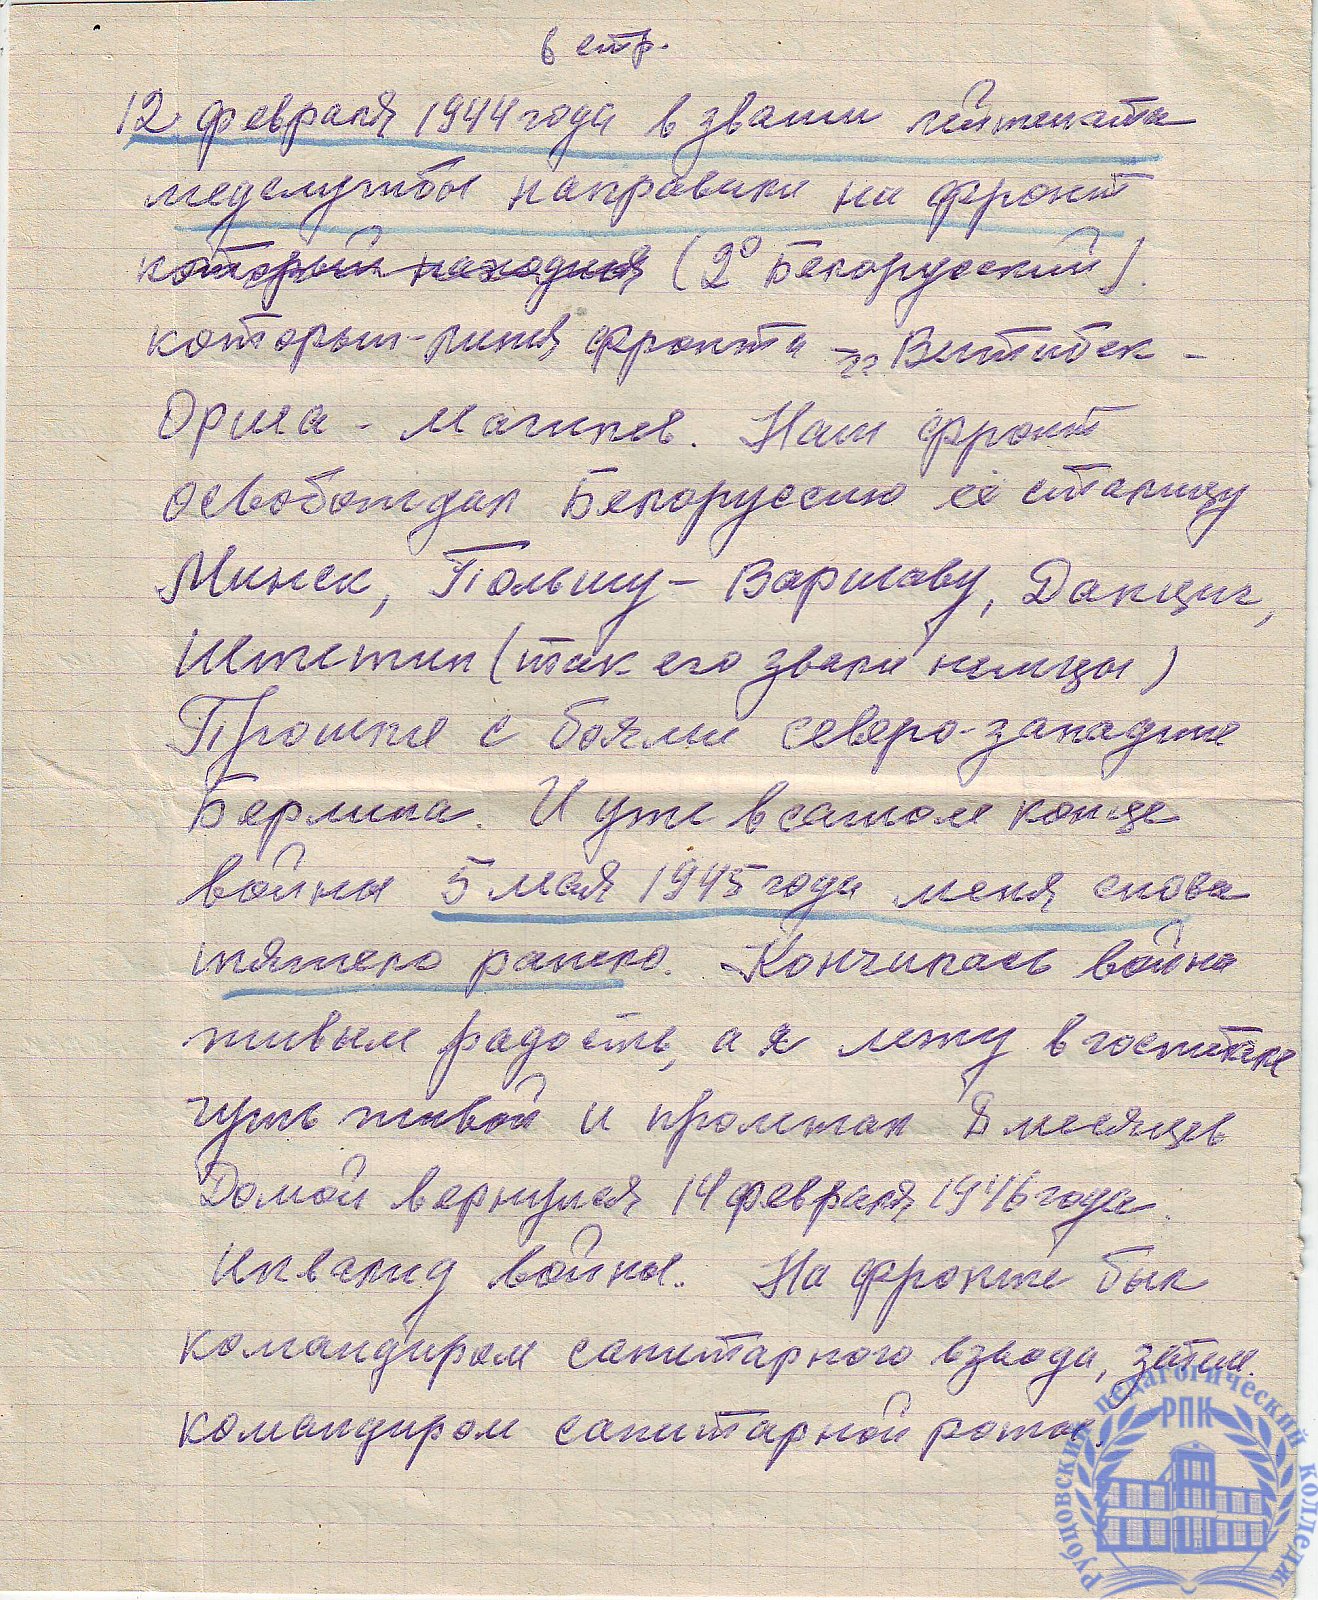 6 стр.
12 февраля 1944 года в звании лейтената
медслужбы направили на фронт
который находился (2º Белорусский).
который-линия фронта гг Витибск -
Орша - Магилев. Наш фронт
освобождал Белоруссию её сталицу
Минск, Польшу - Варшаву, Данциг,
Штетин (так его звали немцы)
Прошли с боями северо-западнее
Берлина. И уже в самом конце
войны 5 мая 1945 года меня снова
тяжело ранело. Кончилась война
живым радость, а я лежу в госпитале
чуть живой и пролежал 8 месяцев
Домой вернулся 14 февраля 1946 года.
Инвалид войны. На фронте был
командиром санитарного взвода, затем
командиром санитарной роты.
Рубцовский педагогический колледж
РПК